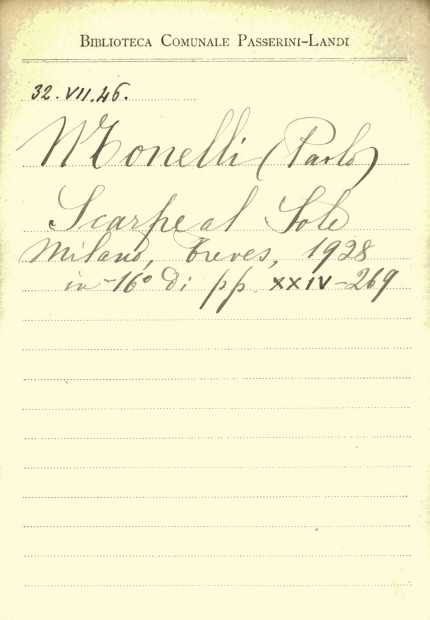 BIBLIOTECA COMUNALE PASSERINI-LANDI
32.VII.46.
Monelli (Paolo)
Scarpe al Sole
Milano, Treves, 1928
in-16º di pp. XXIV-269